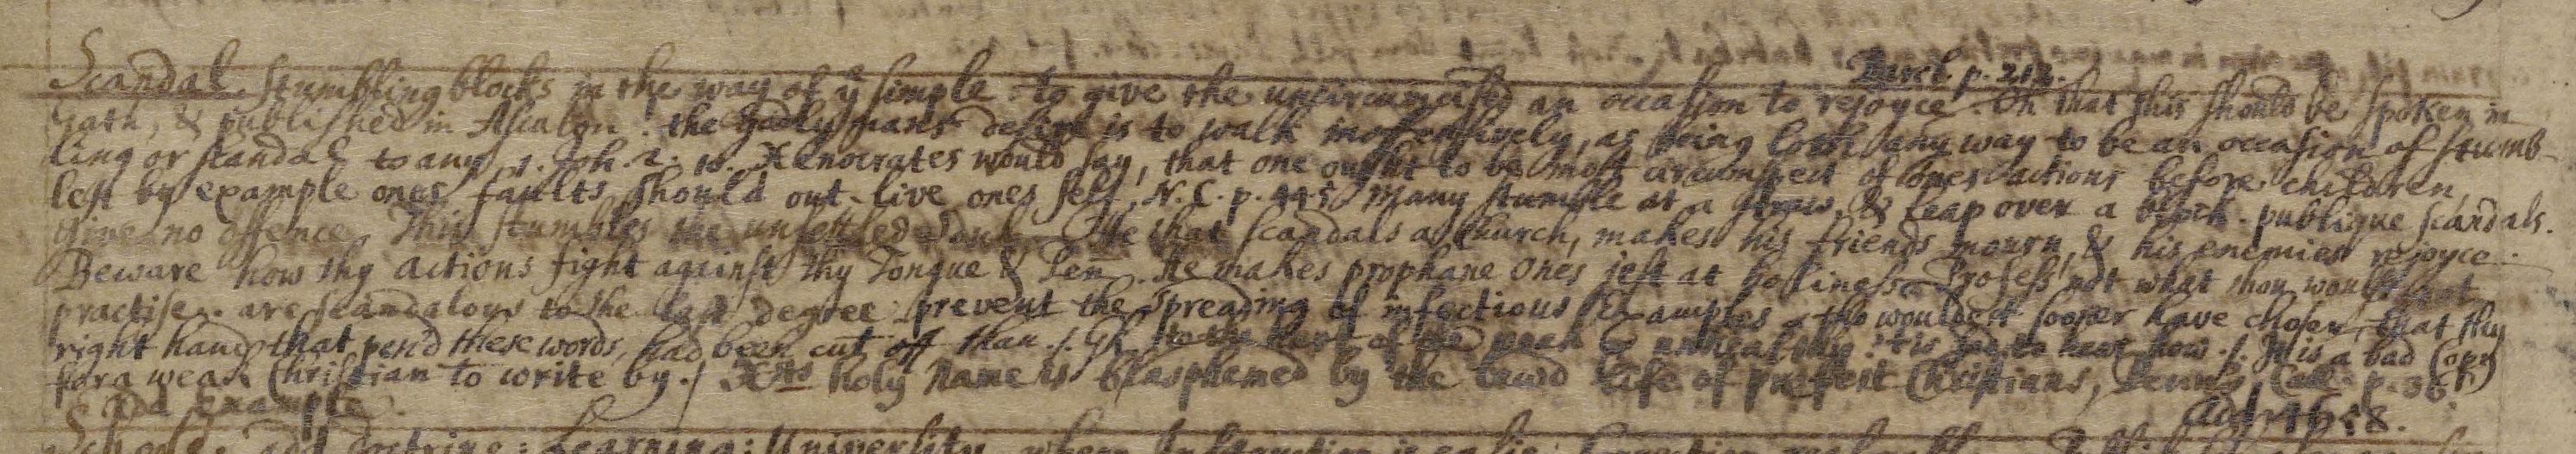 Barcl. p. 212.
Scandal. stumbling blocks in the way of yͤ simple. to give the uncircumcised an occasion to rejoyce. Oh that this should be spoken in
Gath, & published in Ascalon! the Godly mans desire is to walk inoffensively, as being loth any way to be an occasion of stumb-
ling or scandal to any, 1. Joh. 2. 10. Xenocrates would say, that one ought to be most circumspect of ones actions before children,
lest by example ones faults should out-live ones self, N. C. p. 445. Many stumble at a straw, & leap over a block. publique scandals.
Give no offence. This stumbles the unsettled Souls. He that scandals a Church, makes his friends mourn, & his enemies rejoyce.
Beware how thy actions fight against thy Tongue & Pen. He makes prophane Ones jest at holiness. Profess not what thou wouldst not
practise. are scandalous to the last degree. prevent the spreading of infectious Examples. tho wouldest sooner have chosen, that thy
right hand that pen'd these words, had been cut off than./. to the hurt of the weak & unhealthy. 'tis to hear how./. It is a bad Copy
for a weak Christian to write by./ Xᵗˢ holy Name is blasphemed by the lewd Life of profest Christians, p. 36
add example. add 1658.
School. add doctrine: Learning: University. where Instruction is easie, Correction